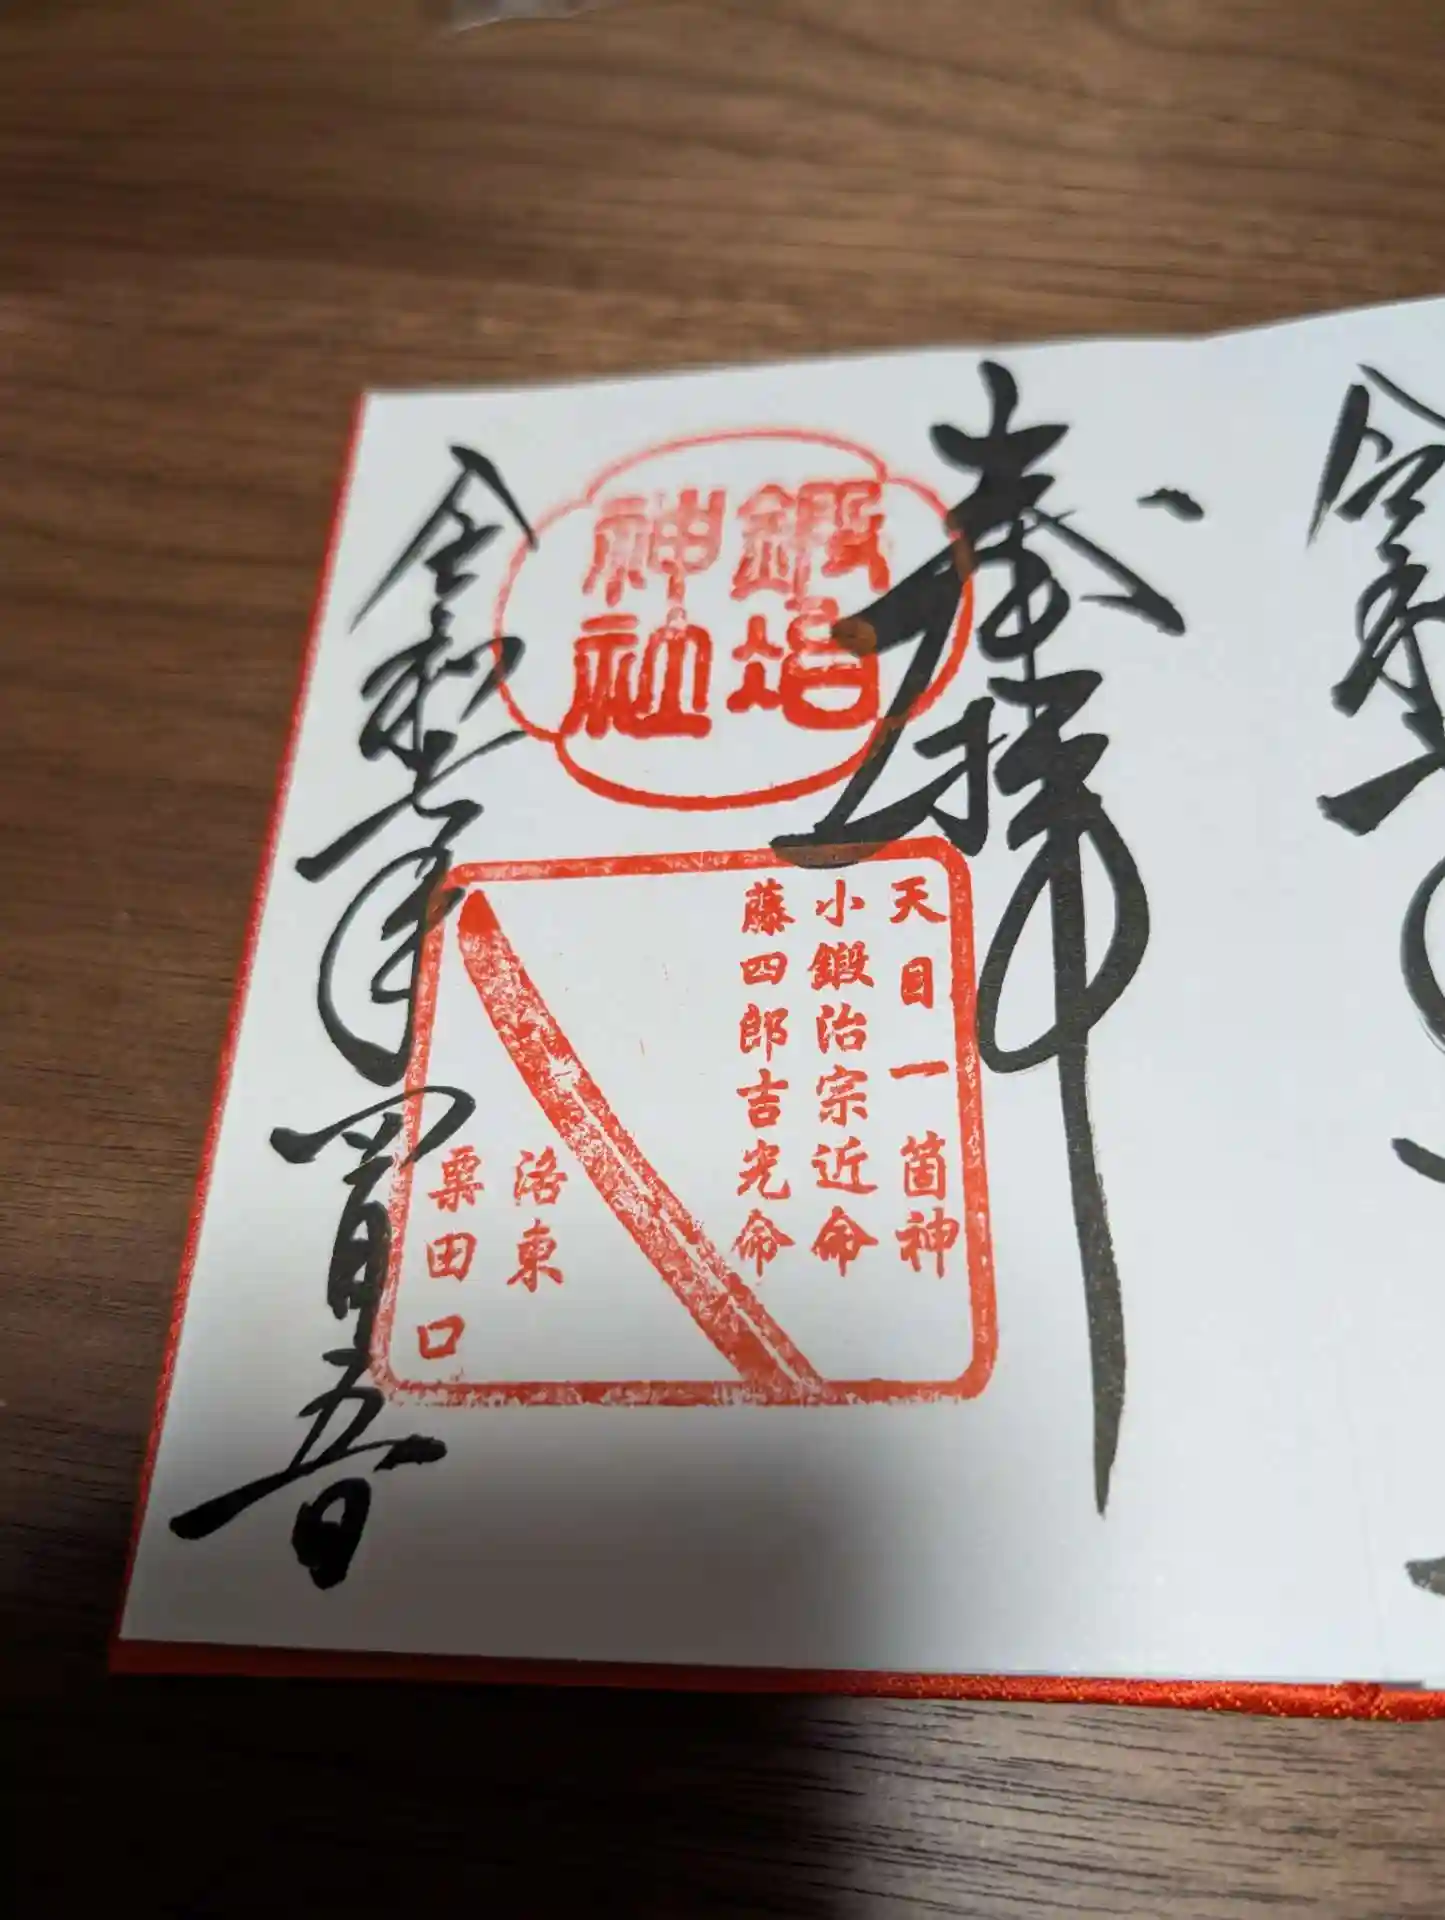 奉拝
鍛冶
神社
天目一箇神
小鍛治宗近命
藤四郎吉光命
洛東
粟田口
令和七年四月五日